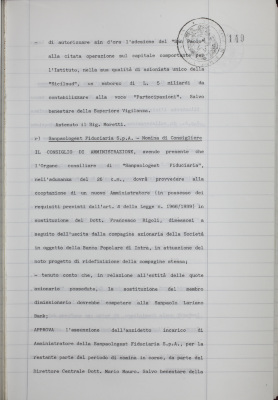 149
- di autorizzare sin d'ora l'adesione del "San Paolo"
alla citata operazione sul capitale comportante per
l'Istituto, nella sua qualità di azionista unico della
un esborso di L. 5 miliardi da
contabilizzare alla voce "Partecipazioni". Salvo
benestare della Superiore Vigilanza.
Astenuto il Sig. Moretti.
Sanpaologest Fiduciaria S.p.A. - Nomina di Consigliere
IL CONSIGLIO DI AMMINISTRAZIONE, avendo presente che
l'Organo consiliare di "Sanpaologest Fiduciaria",
nell'adunanza del 28 c.m., dovrà provvedere alla
cooptazione di un nuovo Amministratore (in possesso dei
requisiti previsti dall'art. 8 della Legge n. 1966/1939) in
sostituzione del Dott. Francesco Rigoli, dimessosi a
seguito dell'uscita dalla compagine azionaria della Società
in oggetto della Banca Popolare di Intra, in attuazione del
noto progetto di ridefinizione della compagine stessa;
- tenuto conto che, in relazione all'entità delle quote
azionarie possedute, la sostituzione del membro
dimissionario dovrebbe competere alla Sanpaolo Lariano
Bank;
APPROVA l'assunzione dell'anzidetto incarico di
Amministratore della Sanpaologest Fiduciaria S.p.A., per la
restante parte del periodo di nomina in corso, da parte del
Direttore Centrale Dott. Mario Mauro. Salvo benestare della